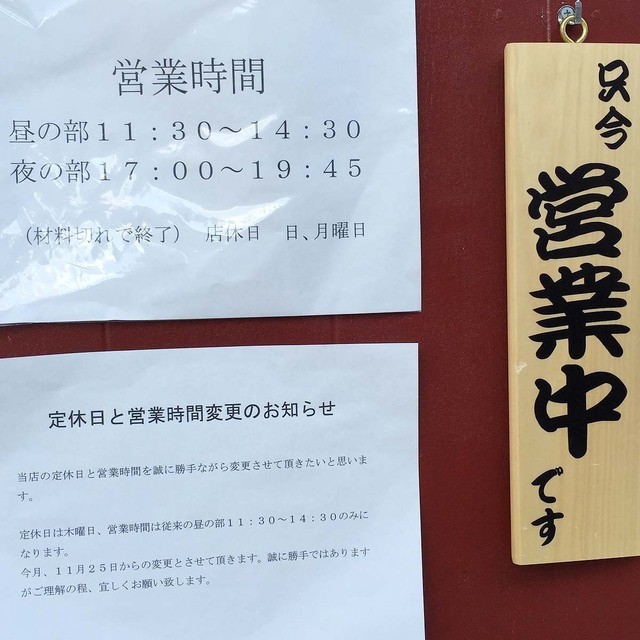 営業時間
昼の部１１：３０～１４：３０
夜の部１７：００～１９：４５
（材料切れで終了）　店休日　日、月曜日
定休日と営業時間変更のお知らせ
当店の定休日と営業時間を誠に勝手ながら変更させて頂きたいと思いま
す。
定休日は木曜日、営業時間は従来の昼の部１１：３０～１４：３０のみに
なります。
今月、１１月２５日からの変更とさせて頂きます。誠に勝手ではあります
がご理解の程、宜しくお願い致します。
只今
営業中
です